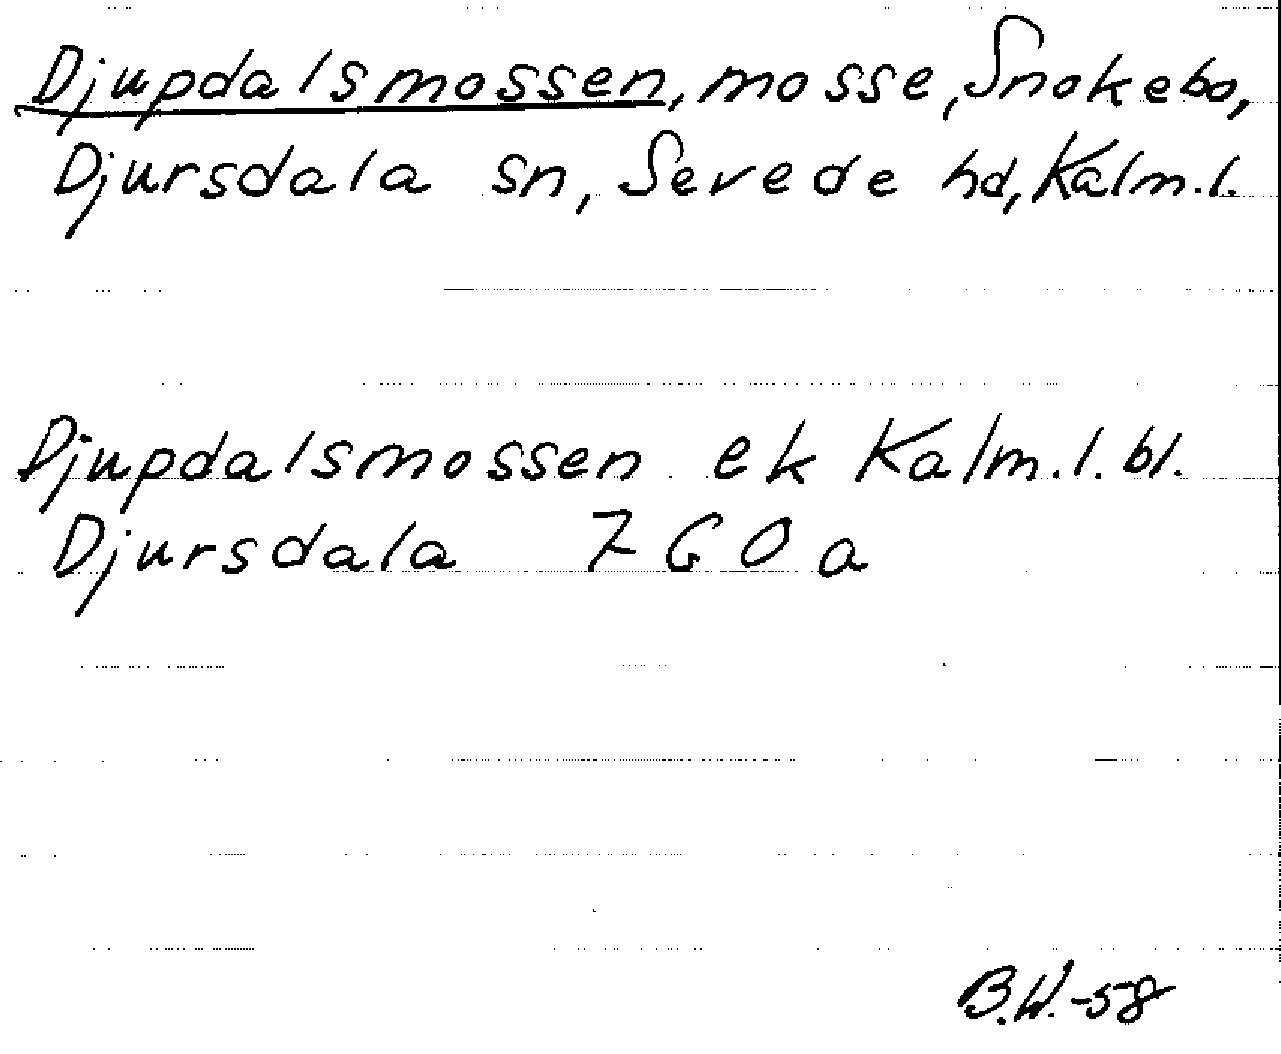 Djupdalsmossen, mosse, Snokebo,
Djursdala sn, Sevede hd, Kalm.l.
Djupdalsmossen ek Kalm.l.bl.
Djursdala 7 G 0 a
B.W.-58